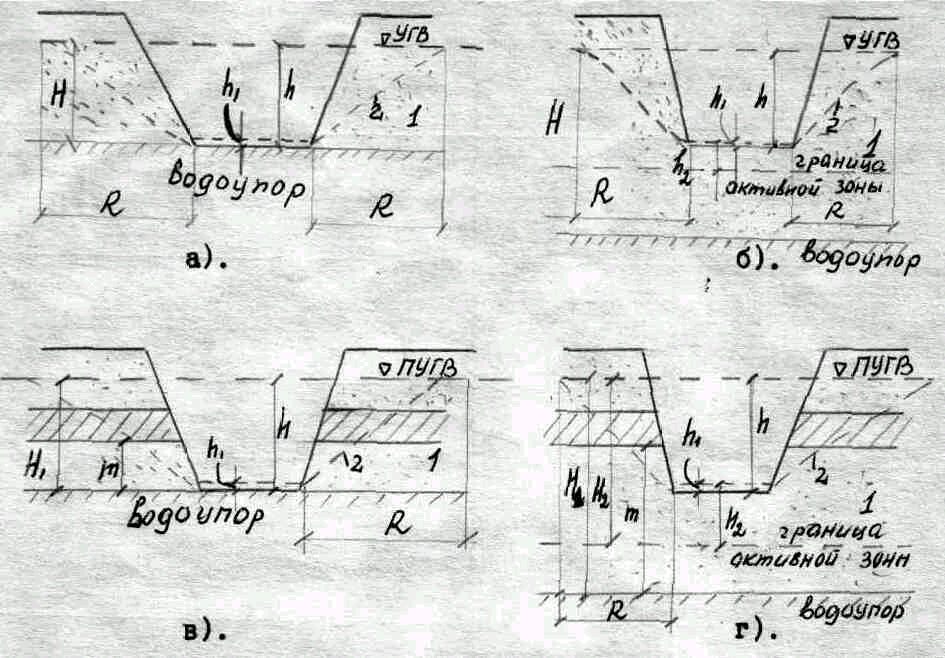 ▽УГВ
H
h₁
h
2
1
водоупор
R
R
а).
▽УГВ
H
h₁
h
2
1
h₂
граница
активной зоны
R
R
б). водоупор
▽ПУГВ
H₁
m
h₁
h
2
1
водоупор
R
в).
▽ПУГВ
H₂
m
h₁
h
2
1
h₂
граница
активной зоны
R
водоупор
г).